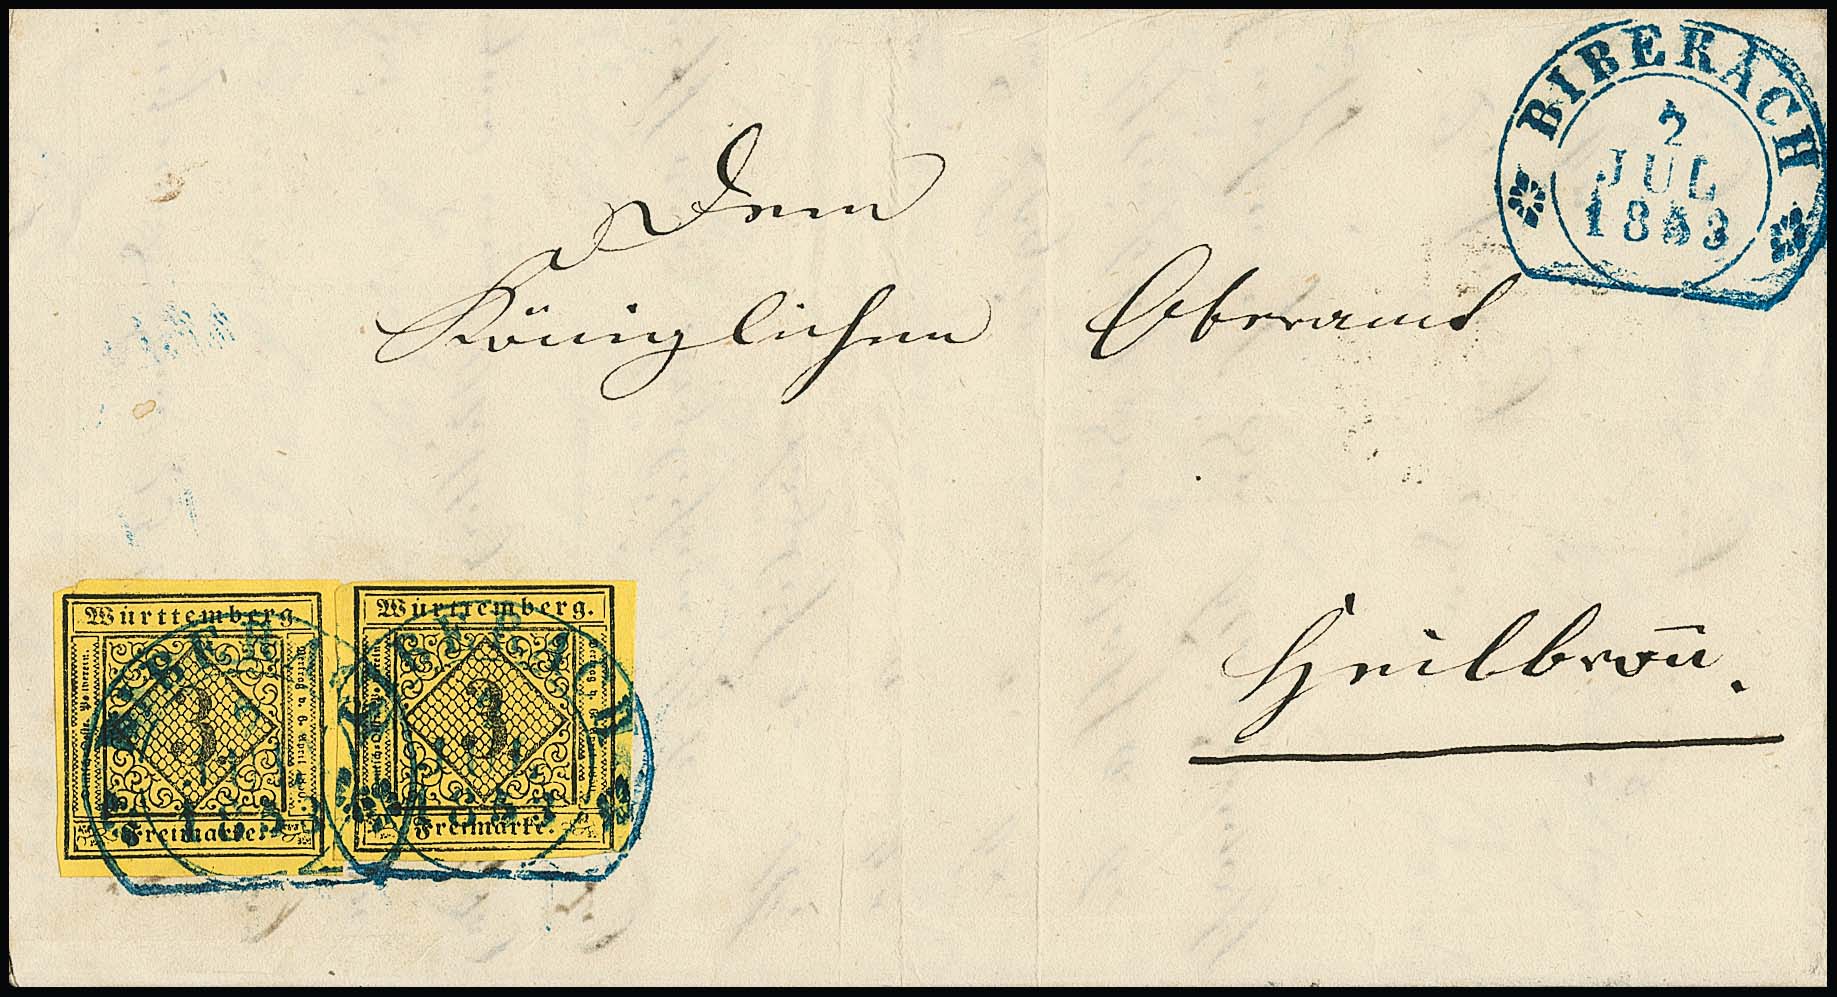 BIBERACH
2
JUL
1853
Dem
Königlichen Oberamt
Heilbron̄.
Württemberg.
3
Freimarke.
Württemberg.
3
Freimarke.
BIBERACH
1853
BIBERACH
1853